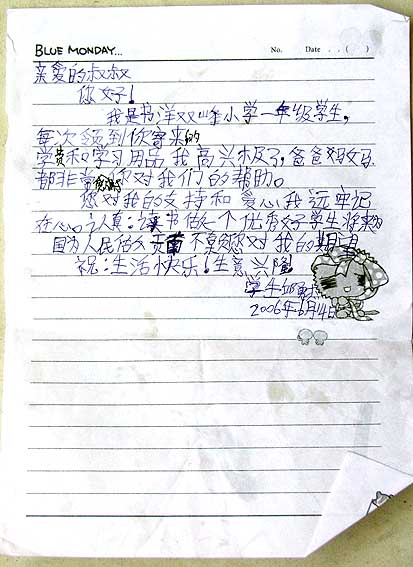 BLUE MONDAY... No. Date . . ( )
亲爱的叔叔
您好!
我是书洋双峰小学一年级学生,
每次领到你寄来的
学费和学习用品我高兴极了,爸爸妈妈
都非常感谢您对我们的帮助。
您对我的支持和爱心我远牢记
在心认真:读书做一个优秀好学生将来为
国为人民做贡献不负您对我的期
祝:生活快乐!生意兴隆
学生邱
2006年6月4日